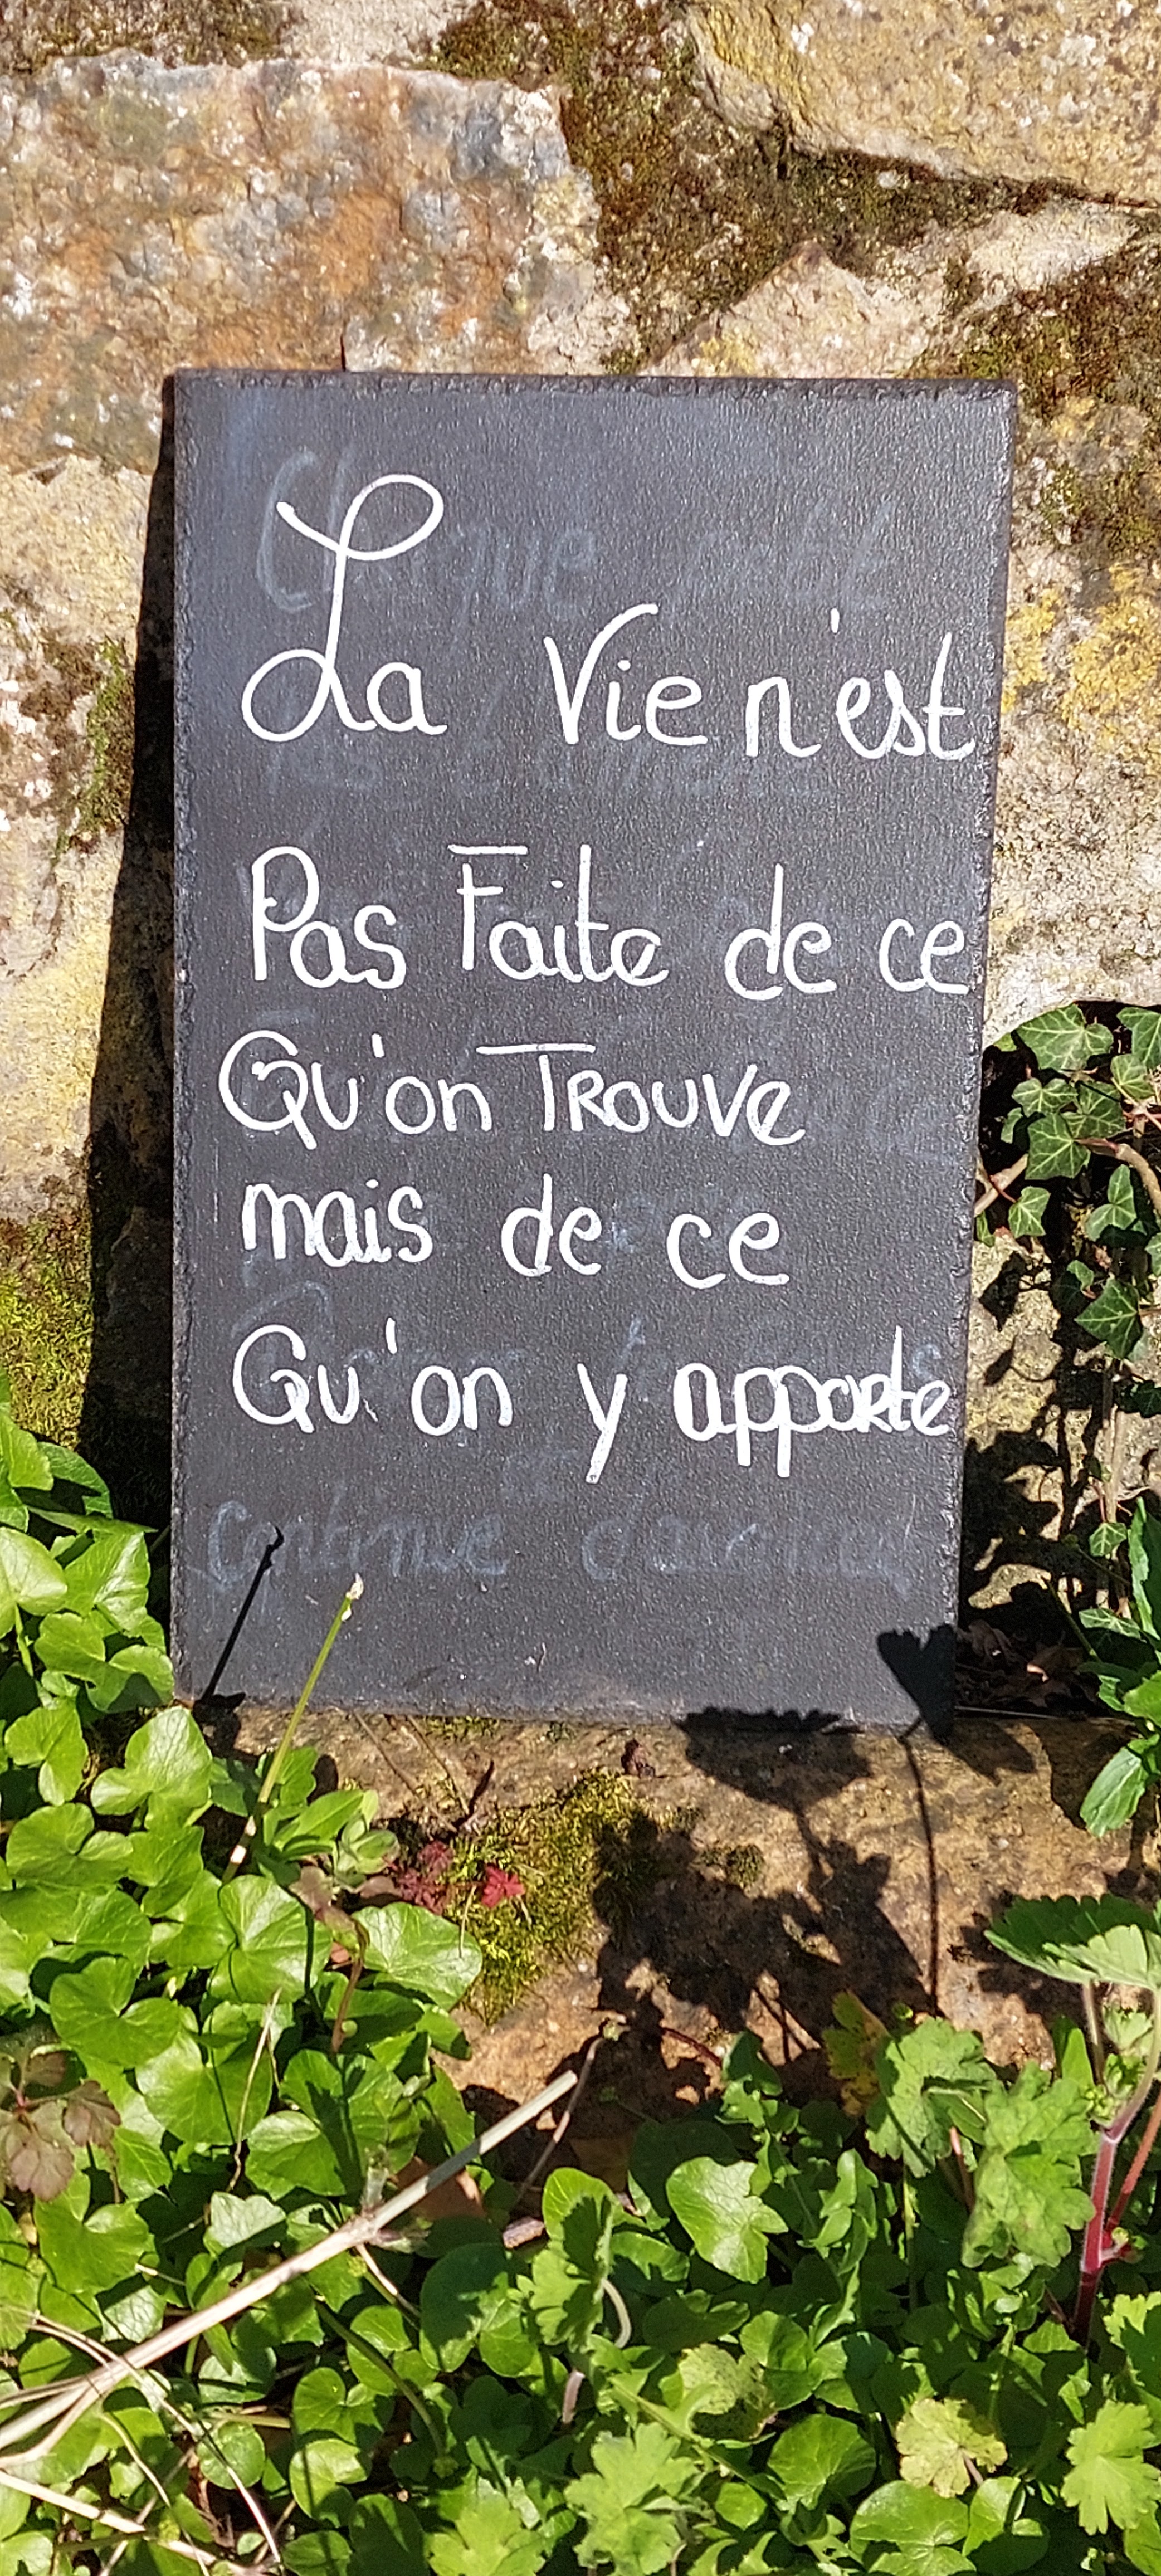 La Vie n'est
Pas Faite de ce
Qu'on TROUVE
mais de ce
Qu'on y apporte